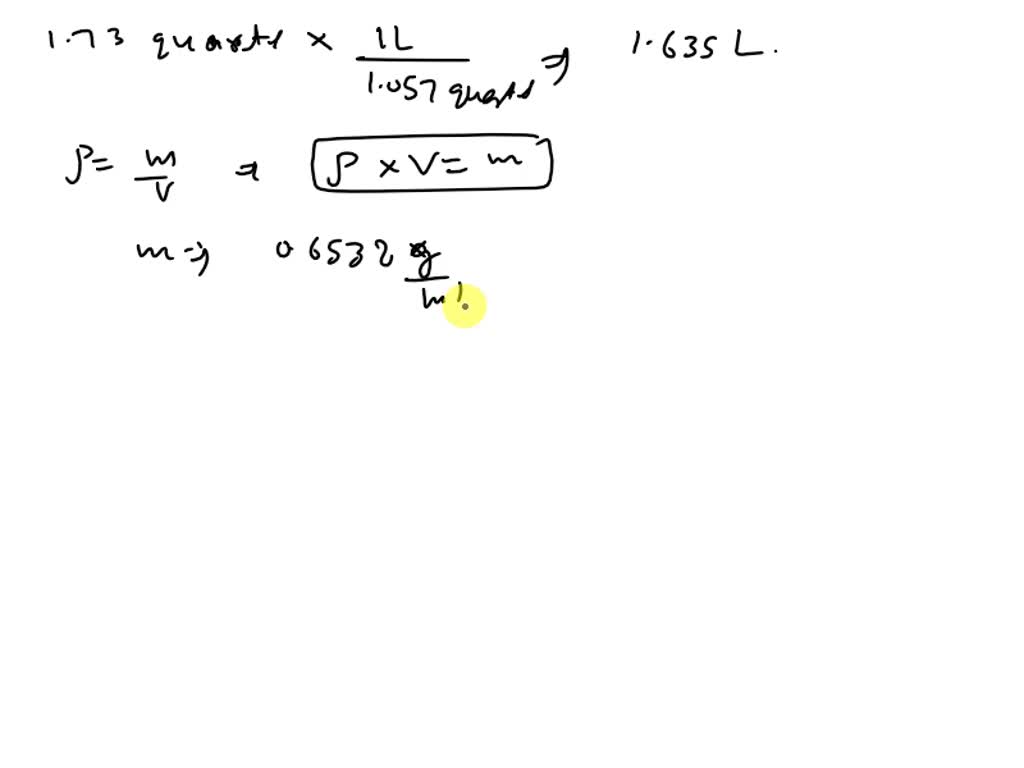 1.73 quarts × 1L / 1.057 quarts ⇒ 1.635 L.
ρ = m / V ⇒ ρ × V = m
m ⇒ 0.6532 g / ml